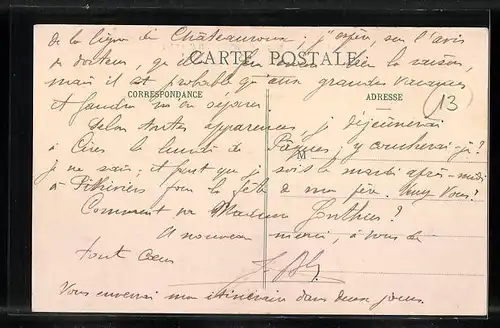 de la ligne de Châteauroux; j'espère, sur l'avis
CARTE POSTALE
du docteur, qu'il la saison,
mais il est probable qu'aux grandes vacances
CORRESPONDANCE
ADRESSE
13
il faudra
Selon toutes apparences, je déjeunerai
à le lundi de Pâques; y coucherai-je?
M
je ne sais; il faut que je sois le mardi après-midi
à Pithiviers pour la fête de mon père. Venez-vous?
Comment va Madame
A nouveau merci, à vous de
tout cœur
Vous enverrai mon itinéraire dans deux jours.